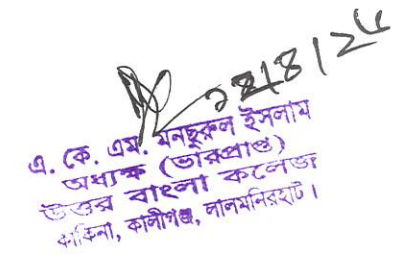 এ. কে. এম মনছুরুল ইসলাম
অধ্যক্ষ (ভারপ্রাপ্ত)
উত্তর বাংলা কলেজ
কাকিনা, কালীগঞ্জ, লালমনিরহাট।